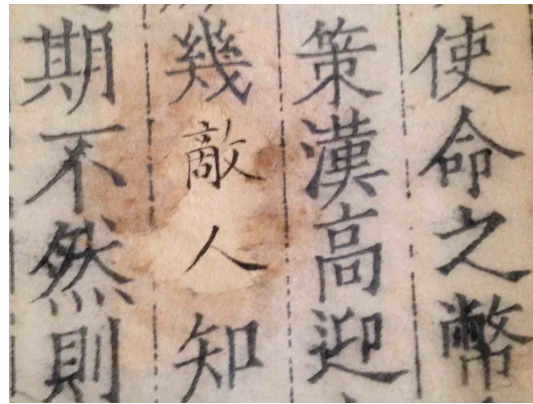 使命之幣
策漢高迎
幾敵人知
期不然則